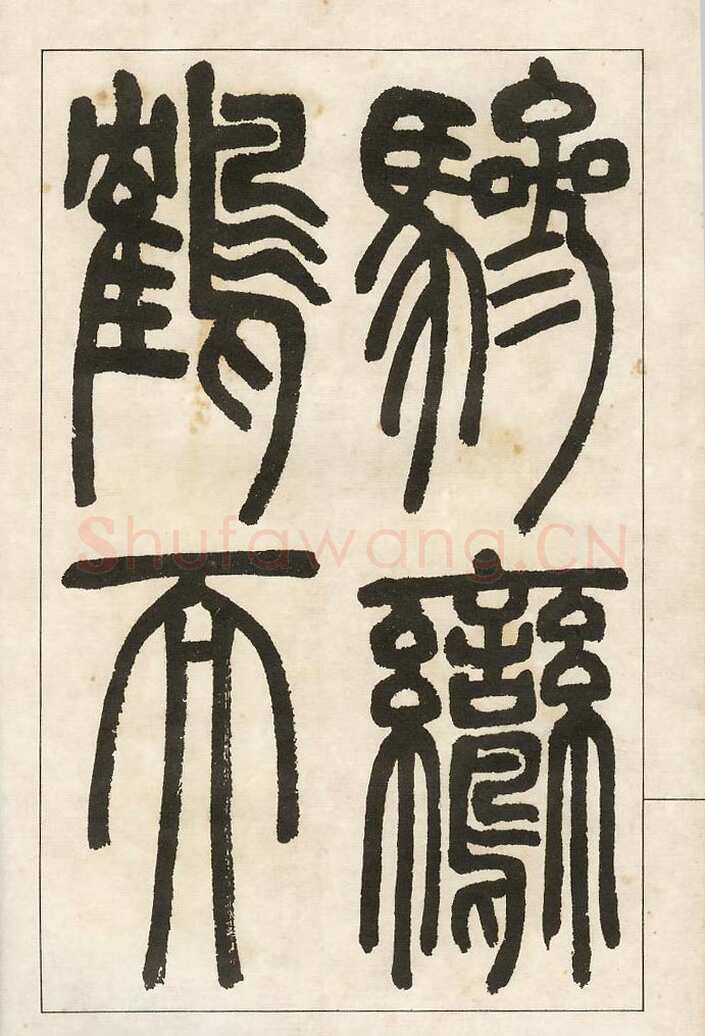 驂鸞
鶴而
Shufawang.CN